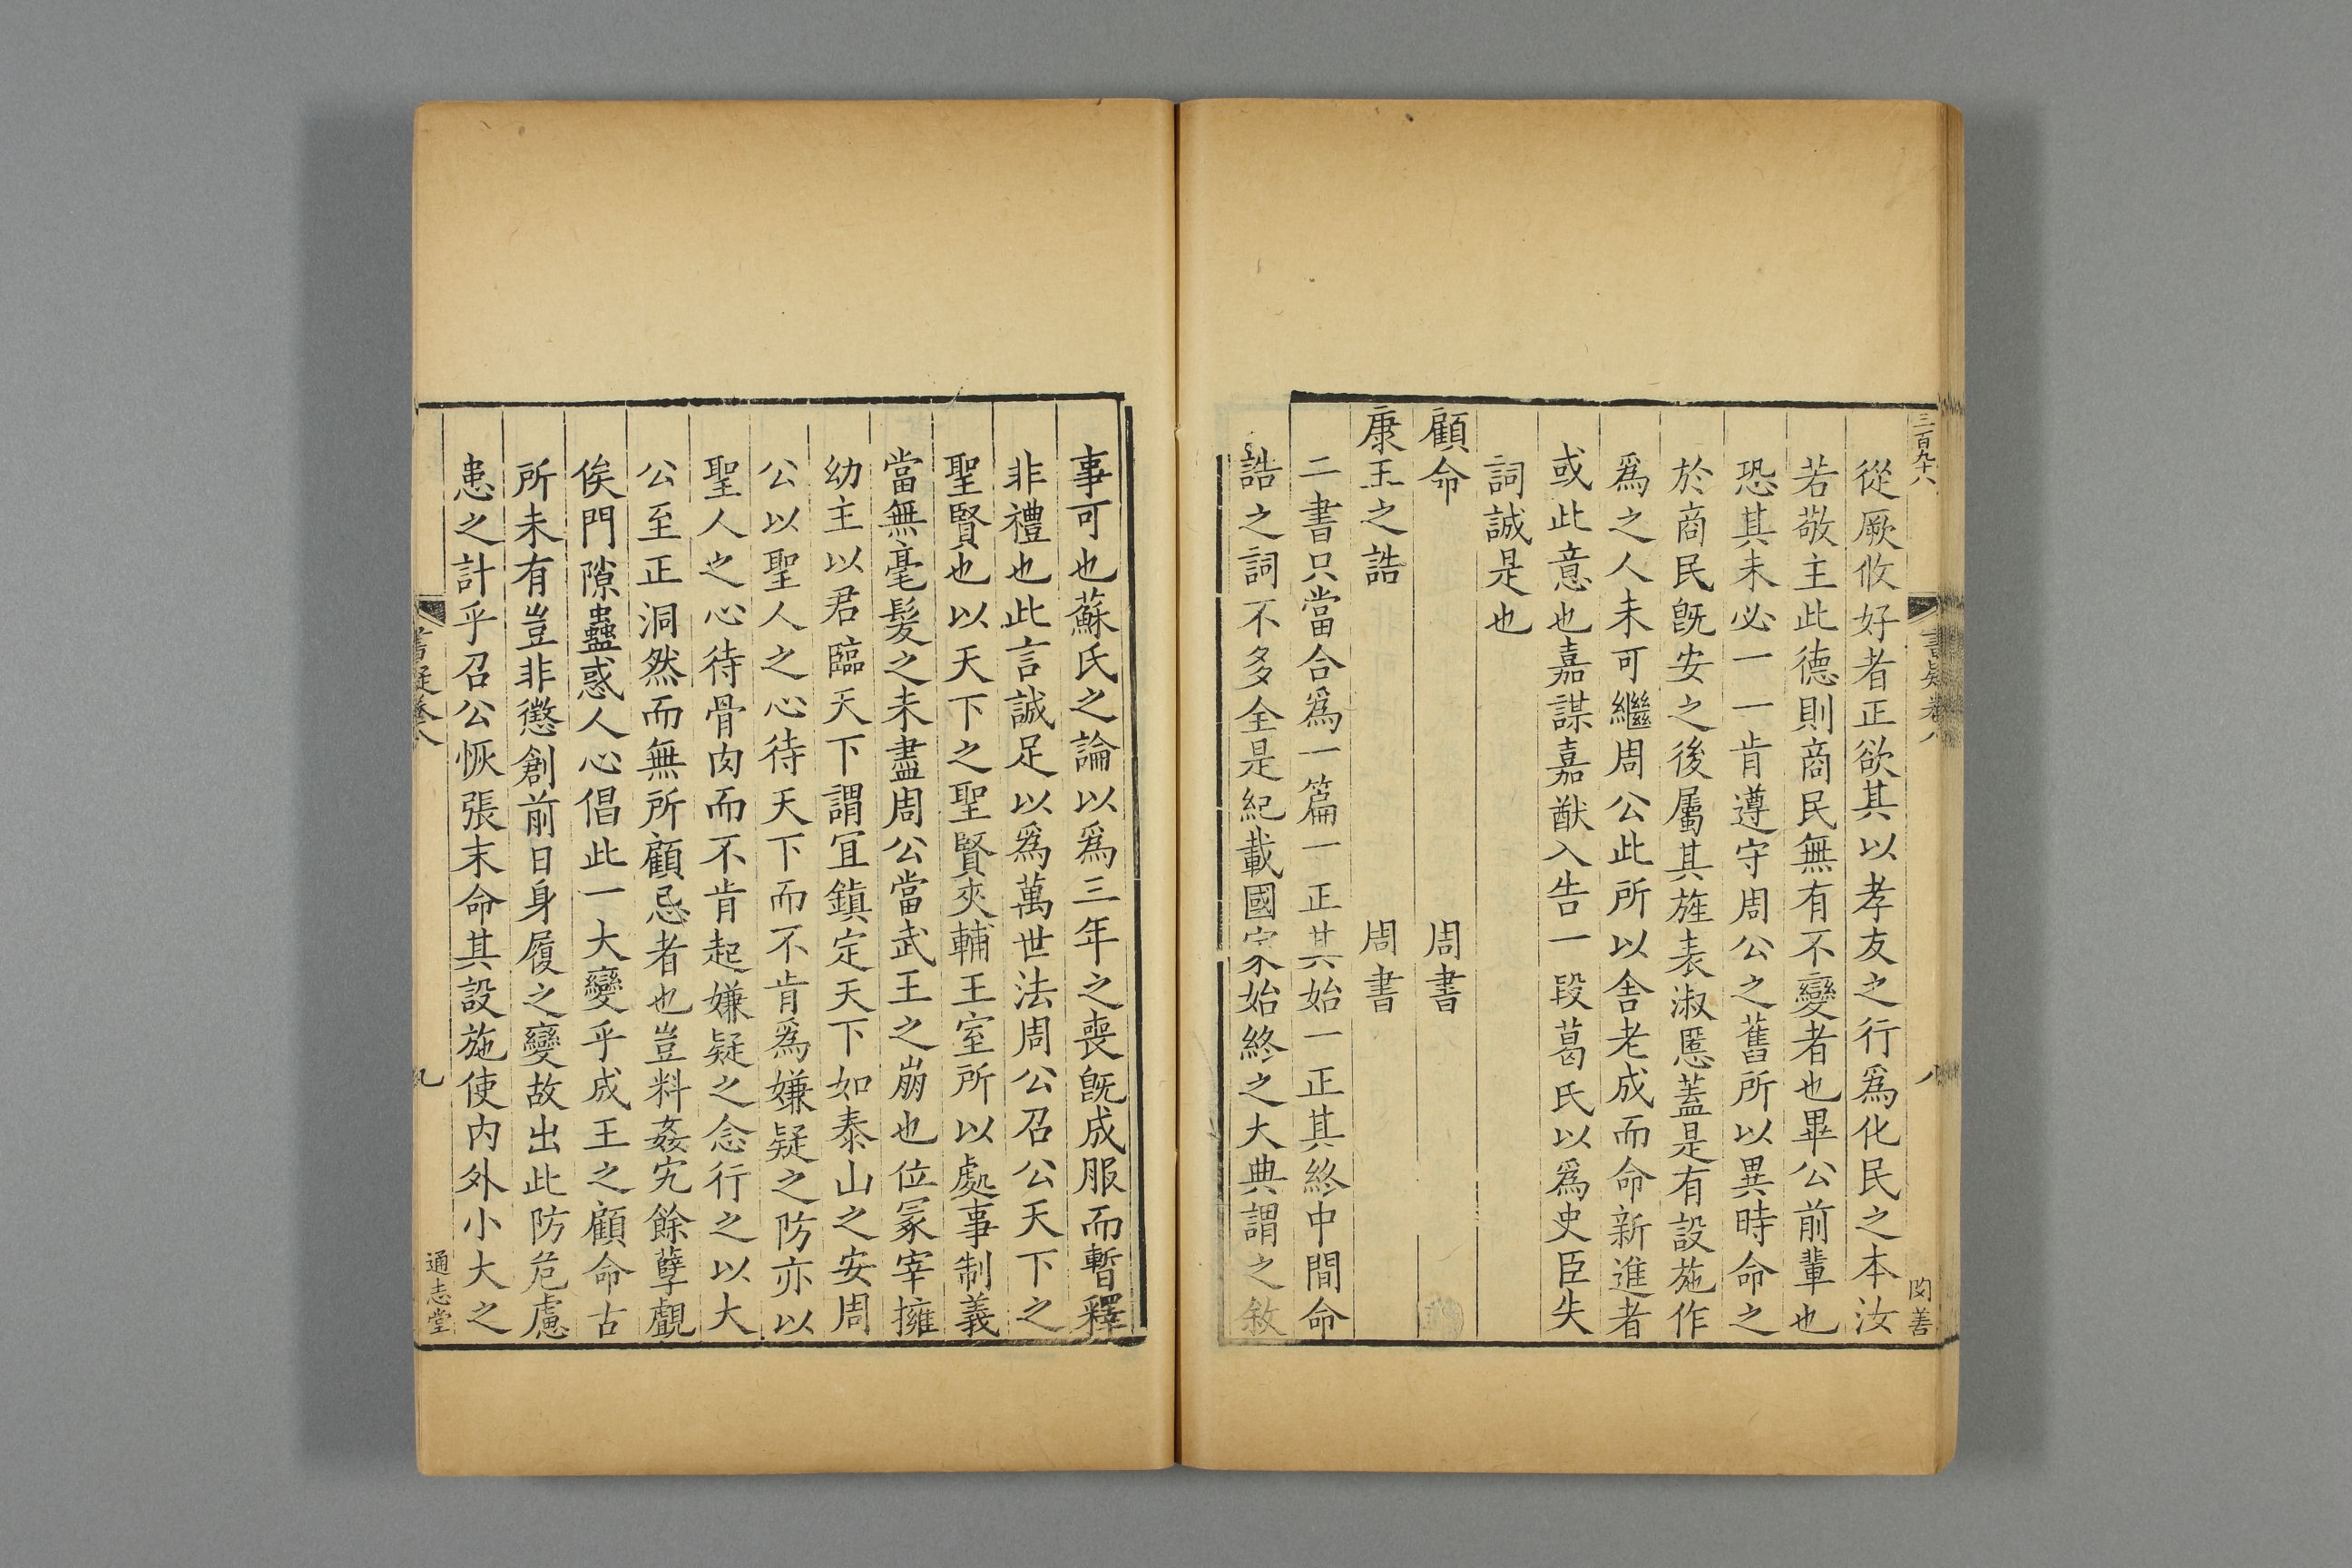 三百九十八
書疑卷八
八
閔善
從厥攸好者正欲其以孝友之行爲化民之本汝
若敬主此德則商民無有不變者也畢公前輩也
恐其未必一一肯遵守周公之舊所以異時命之
於商民旣安之後屬其旌表淑慝蓋是有設施作
爲之人未可繼周公此所以舍老成而命新進者
或此意也嘉謀嘉猷入告一段葛氏以爲史臣失
詞誠是也
顧命 周書
康王之誥 周書
二書只當合爲一篇一正其始一正其終中間命
誥之詞不多全是紀載國家始終之大典謂之敘
事可也蘇氏之論以爲三年之喪旣成服而暫釋
非禮也此言誠足以爲萬世法周公召公天下之
聖賢也以天下之聖賢夾輔王室所以處事制義
當無毫髮之未盡周公當武王之崩也位冢宰擁
幼主以君臨天下謂宜鎮定天下如泰山之安周
公以聖人之心待天下而不肯爲嫌疑之防亦以
聖人之心待骨肉而不肯起嫌疑之念行之以大
公至正洞然而無所顧忌者也豈料姦宄餘孽覷
俟門隙蠱惑人心倡此一大變乎成王之顧命古
所未有豈非懲創前日身履之變故出此防危慮
患之計乎召公恢張末命其設施使内外小大之
書疑卷八
九
通志堂